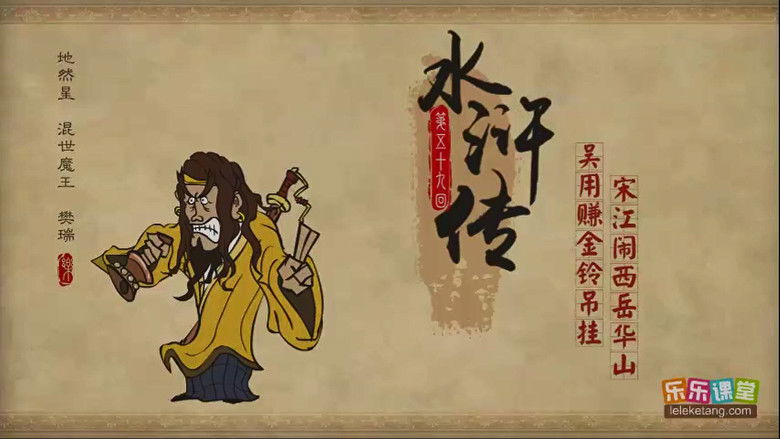 地然星 混世魔王 樊瑞
樂
水浒传
第五十九回
吴用赚金铃吊挂
宋江闹西岳华山
乐乐课堂
leleketang.com